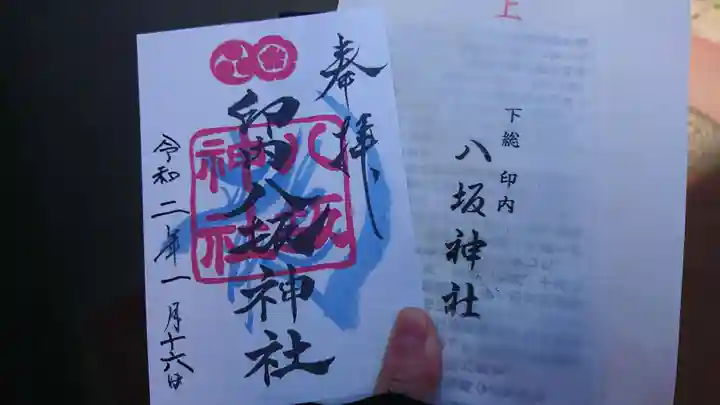 奉拝
印内八坂神社
八坂神社
令和二年一月十六日
上
下総 印内
八坂神社